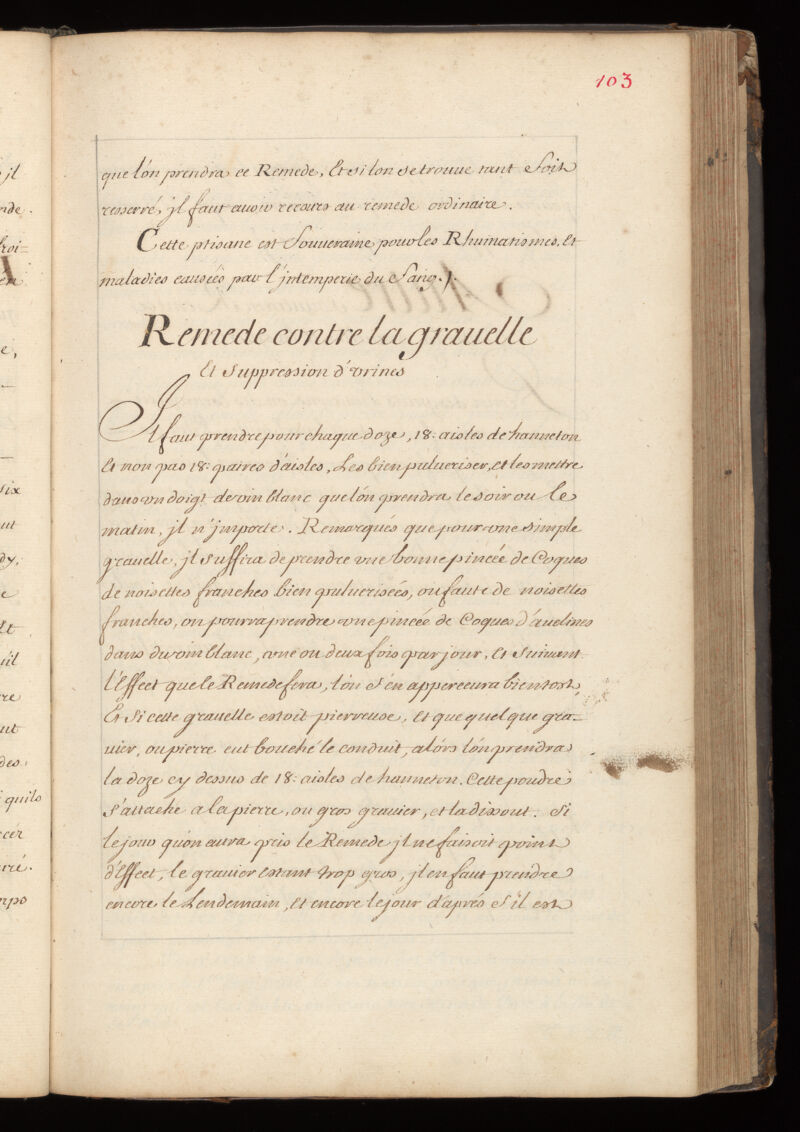 103
que lón prendra ce Remede, Et si lon se trouue tant Soit
resserré, jl faut auoir recours au remede ordinaire.
Cette ptisane est Souueraine pour les Rhumatismes, Et
maladies causées par l'jntemperie du Sang.
Remede contre la grauelle
Et Suppression d'vrines
Jl faut prendre pour chaque doze, 18: aisles de hanneton
Et non pas 18: paires d'aisles, Les bien pulueriser, et les mettre
dans vn doigt de vin blanc que lón prendra le soir ou le
matin, jl n'jmporte. Remarqués que pour vne simple
grauelle, jl suffira de prendre vne bonne pincée de Coques
de noisettes franches bien puluerisées, ou faute de noisettes
franches, on pourra prendre vne pincée de Coques d'auelines
dans du vin blanc, vne ou deux fois par jour, Et Suiuant
l'Effect que le Remede fera, lón s'en apperceura bientost,
Et Si cette grauelle estoit pierreuse, Et que quelque gra-
uier, ou pierre eut bouché le conduit, alórs lón prendra
la doze cy dessus de 18: aisles de hanneton. Cette poudre
s'attache a la pierre, ou gros grauier, et la disout. Si
le jour qu'on aura pris le Remede jl ne faisoit point
d'Effect, le grauier estant trop gros, jl en faut prendre
encore le Lendemain, Et encore le jour d'apres S'il est
jl
six
dy,
Et
des,
quils